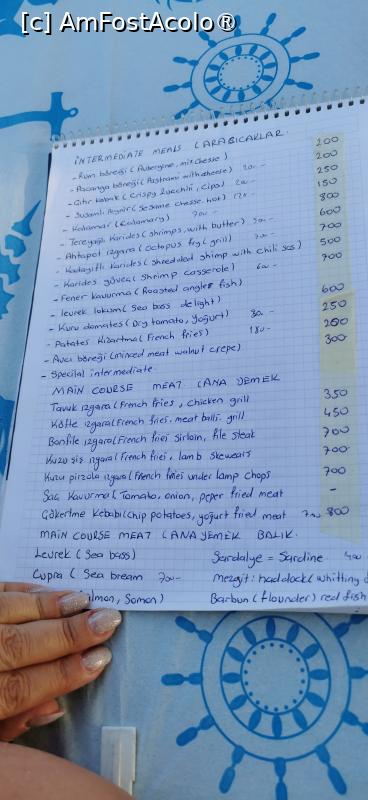 [c] AmFostAcolo®
INTERMEDIATE MEALS (ARASICAKLAR. 200
- Rum böreği (Aubergine, mit cheese) 200
- Paçanga böreği (Pastrami with cheese) 20.- 250
- Çıtır kabak (Crispy zucchini, cips) 20.- 150
- Susamlı Peynir (Sesame cheese hot) 300
- Kalamar (Calamary) 600
- Tereyağlı Karides (Shrimps, with butter) 700
- Ahtapot ızgara (Octopus fry (grill) 500
- Kadayıflı Karides (Shredded shimp with chili scs) 700
- Karides güveç (Shrimp casserole)
- Fener kavurma (Roasted angler fish) 600
- levrek lokum (Sea bass delight) 250
- Kuru domates (Dry tomato, yoğurt) 200
- Patates Kızartma (French fries) 180.- 300-
- Avcı böreği (minced meat walnut crepe)
- Specilal intermediate.
MAIN COURSE MEAT (ANA YEMEK
Tavuk ızgara (French fries, chicken grill 350
Köfte ızgara (French fries. meat balls. grill 450
Bonfile ızgara (French fries Sirloin, file steak 700
Kuzu şiş ızgara (French fries. lamb skewears 700-
Kuzu pirzola ızgara (French fries under lamp chops 700
Saç Kavurma (Tomato, onion, peper fried meat -
Çökertme Kebabı (Chip potatoes, yoğurt fried meat 800
MAIN COURSE MEAT (ANA YEMEK BALIK.
Levrek (Sea bass) Sardalye = Sardine 400
Çupra (Sea bream 700- Mezgit: haddock (whitting
almon, Somon) Barbun (flounder) red fish